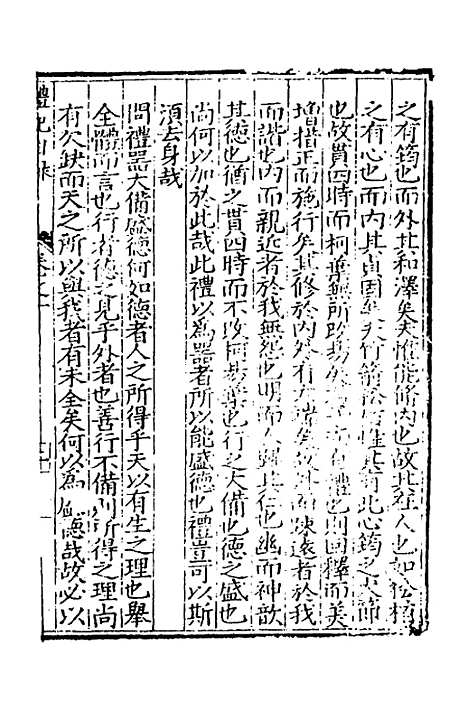 之有筠也而外其和澤矣夫惟能脩內也故其在人也如松栢
之有心也而內其貞固矣夫竹箭松栢惟其有此心筠之大節
也故貫四時而柯葉無所改易外有則因釋而美
增措正而施行矣其修於內外有故外而疎遠者於我
而諧也內而親近者於我無怨也明而人歸其仁也幽而神歆
其德也猶之貫四時而不改柯易葉也行之大備也德之盛也
尚何以加於此哉此禮以為器者所以能盛德也禮豈可以斯
須去身哉
問禮器大備盛德何如德者人之所得乎天以有生之理也舉
全體而言也行者德之見乎外者也善行不備則所得之理尚
有欠缺而天之所以與我者有未全矣何以為盛德哉故必以
禮記
卷之